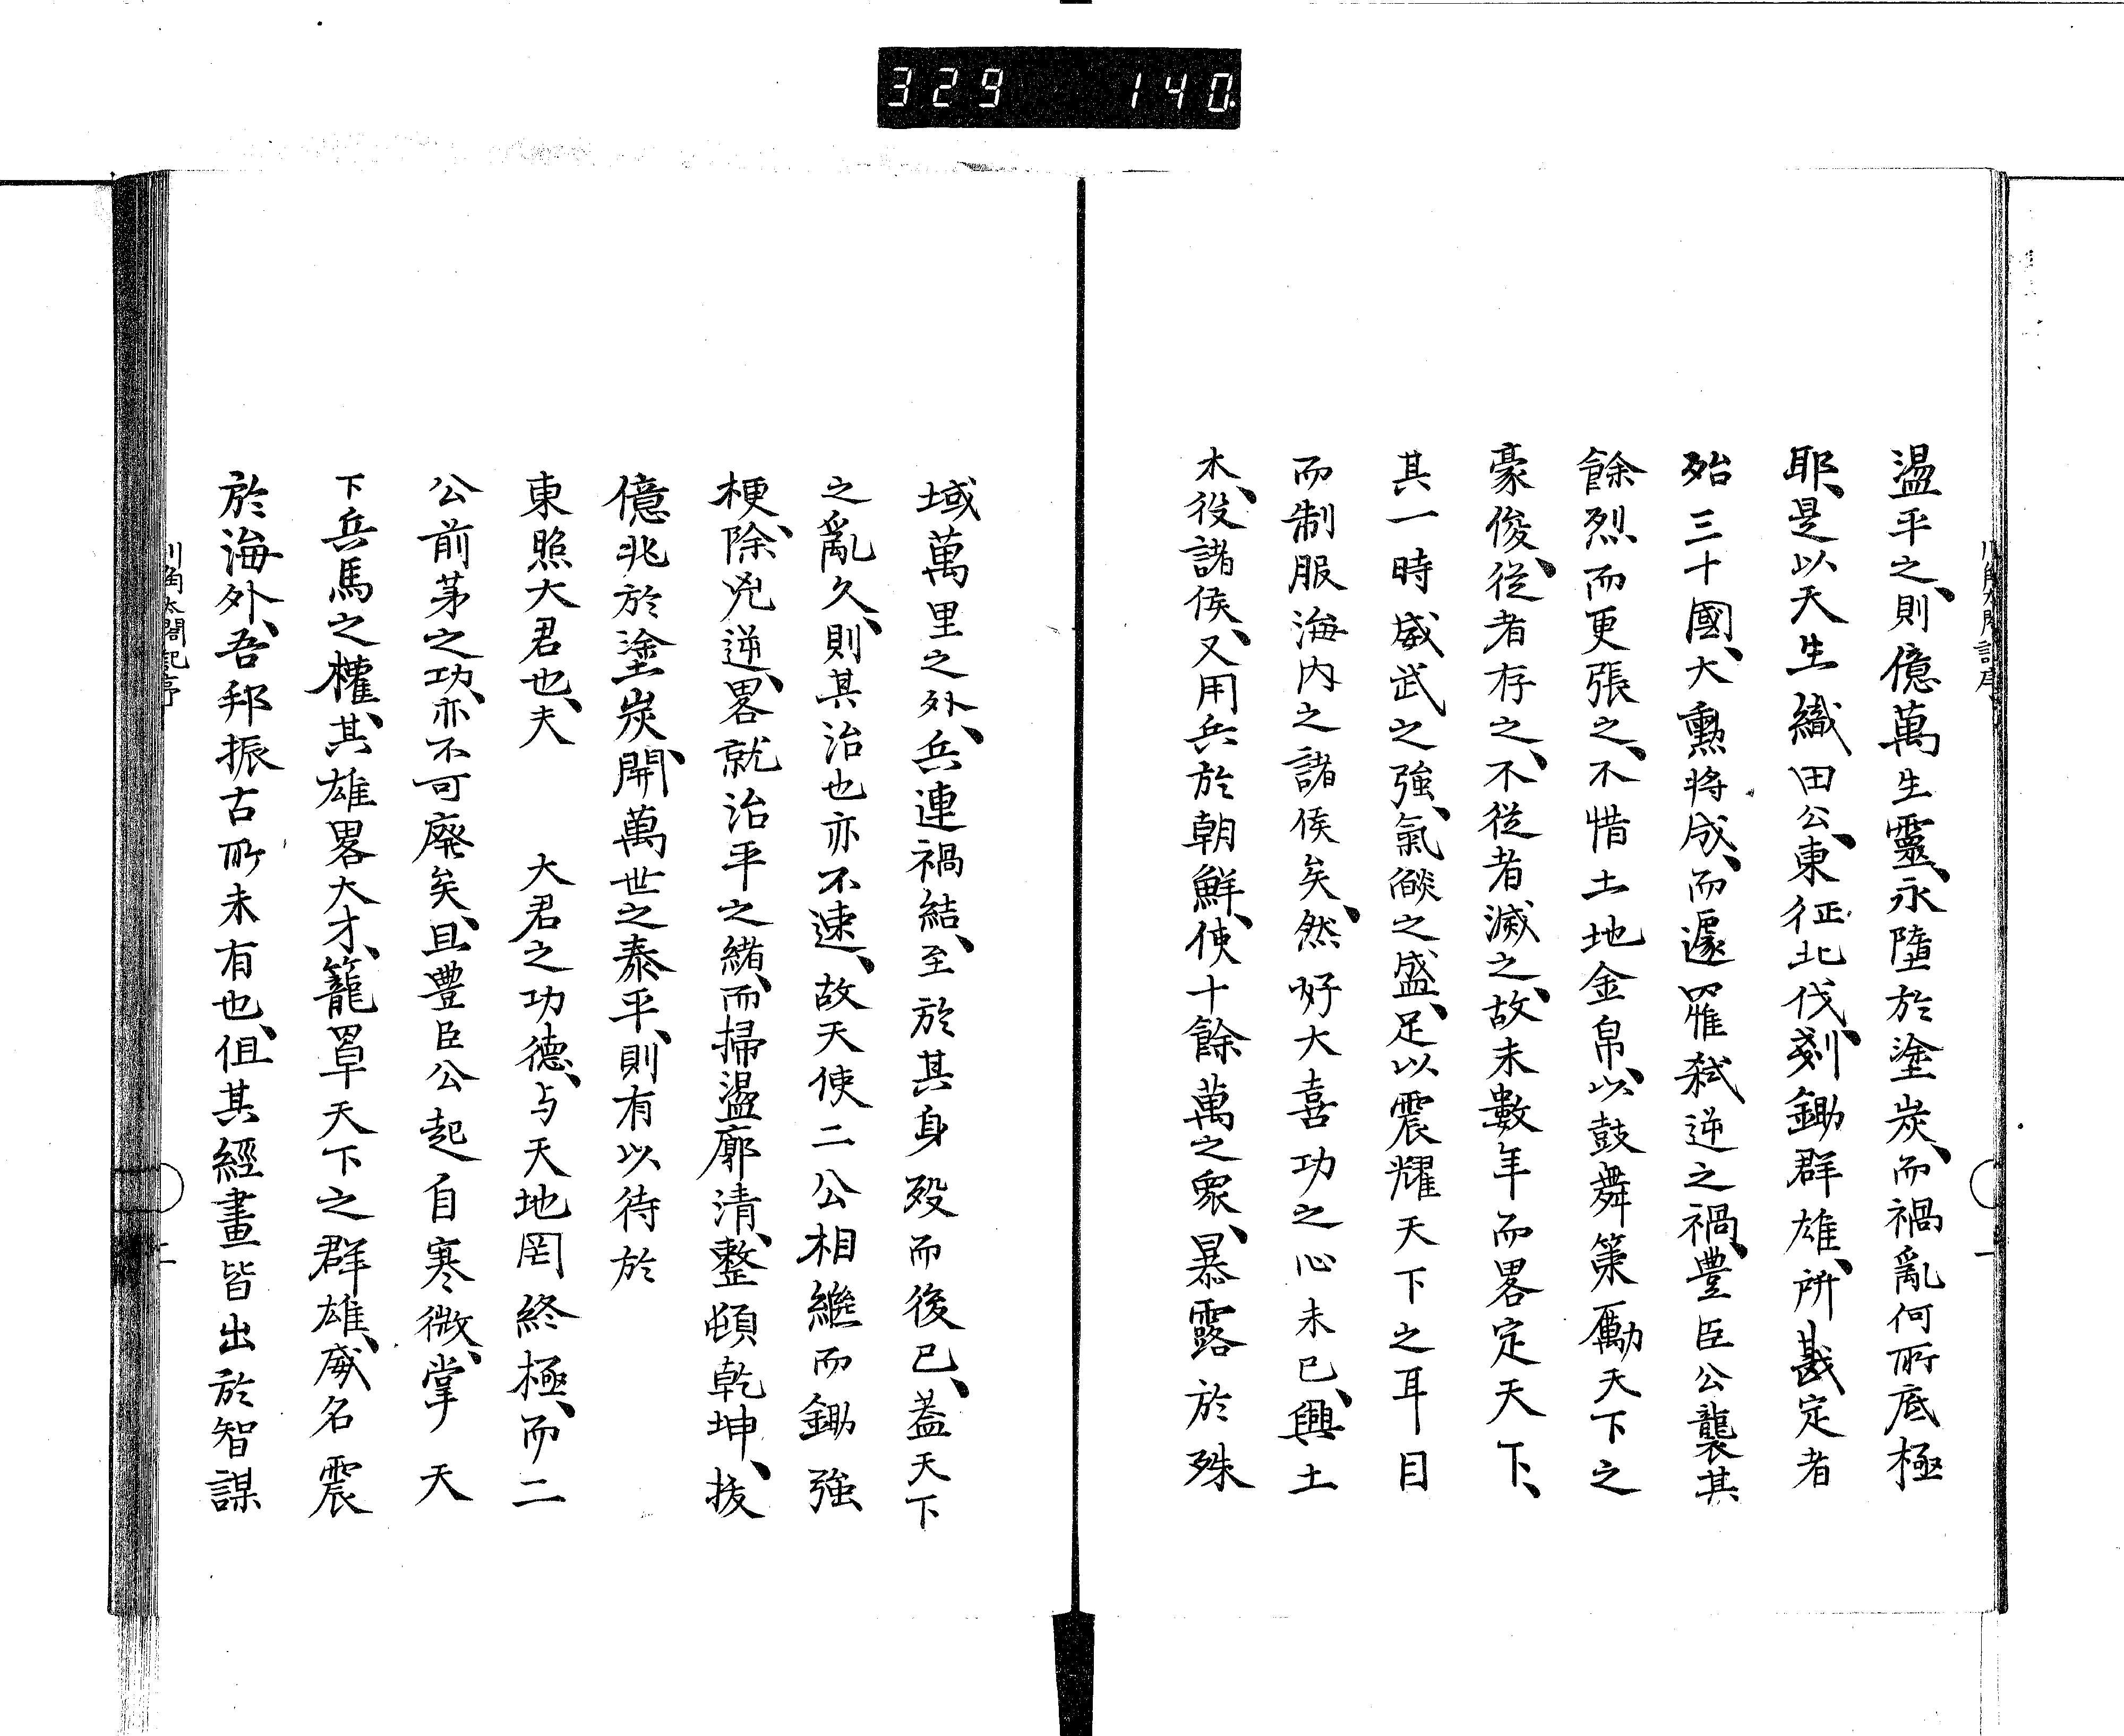 329 140.
盪平之、則億萬生靈、永墮於塗炭、而禍亂何所底極
耶、是以天生織田公、東征北伐、剗鋤群雄、所戡定者
殆三十國、大勲将成、而遽罹弑逆之禍、豊臣公襲其
餘烈而更張之、不惜土地金帛、以鼓舞策勵天下之
豪俊、從者存之、不從者滅之、故未數年而畧定天下、
其一時威武之強、氣燄之盛、足以震耀天下之耳目
而制服海内之諸侯矣、然好大喜功之心未已、興土
木、役諸侯、又用兵於朝鮮、使十餘萬之衆、暴露於殊
域萬里之外、兵連禍結、至於其身歿而後已、葢天下
之亂久、則其治也亦不速、故天使二公相繼而鋤強
梗、除兇逆、畧就治平之緒、而掃盪廓清、整頓乾坤、拔
億兆於塗炭、開萬世之泰平、則有以待於
東照大君也、夫 大君之功德、与天地罔終極、而二
公前茅之功、亦不可廃矣、且豊臣公起自寒微、掌天
下兵馬之權、其雄畧大才、籠罩天下之群雄、威名震
於海外、吾邦振古所未有也、但其經畫皆出於智謀
川角太閤記序
二
川角太閤記序
一